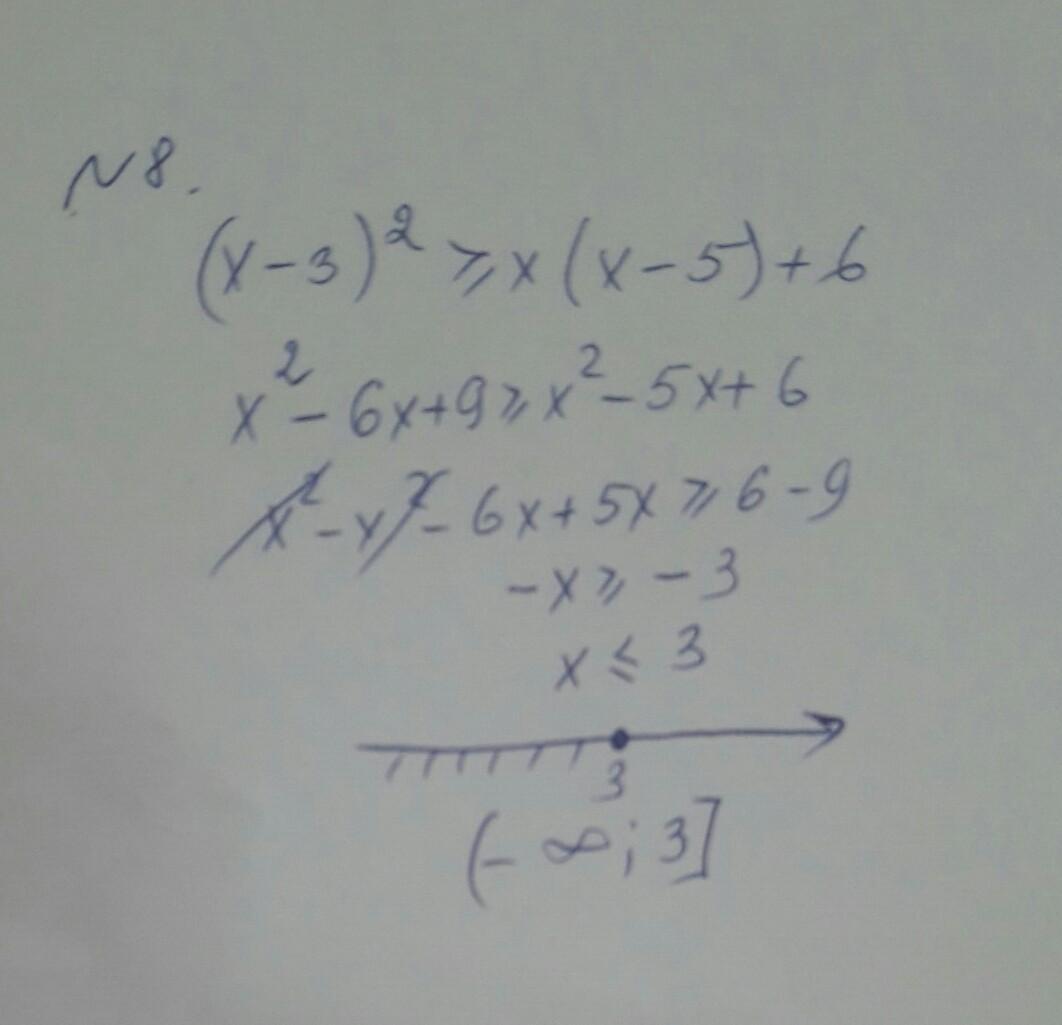 N8.
(x-3)² ⩾ x(x-5)+6
x² - 6x+9 ⩾ x² - 5x+ 6
x² - x² - 6x+5x ⩾ 6-9
-x ⩾ -3
x ≤ 3
3
(- ∞; 3]